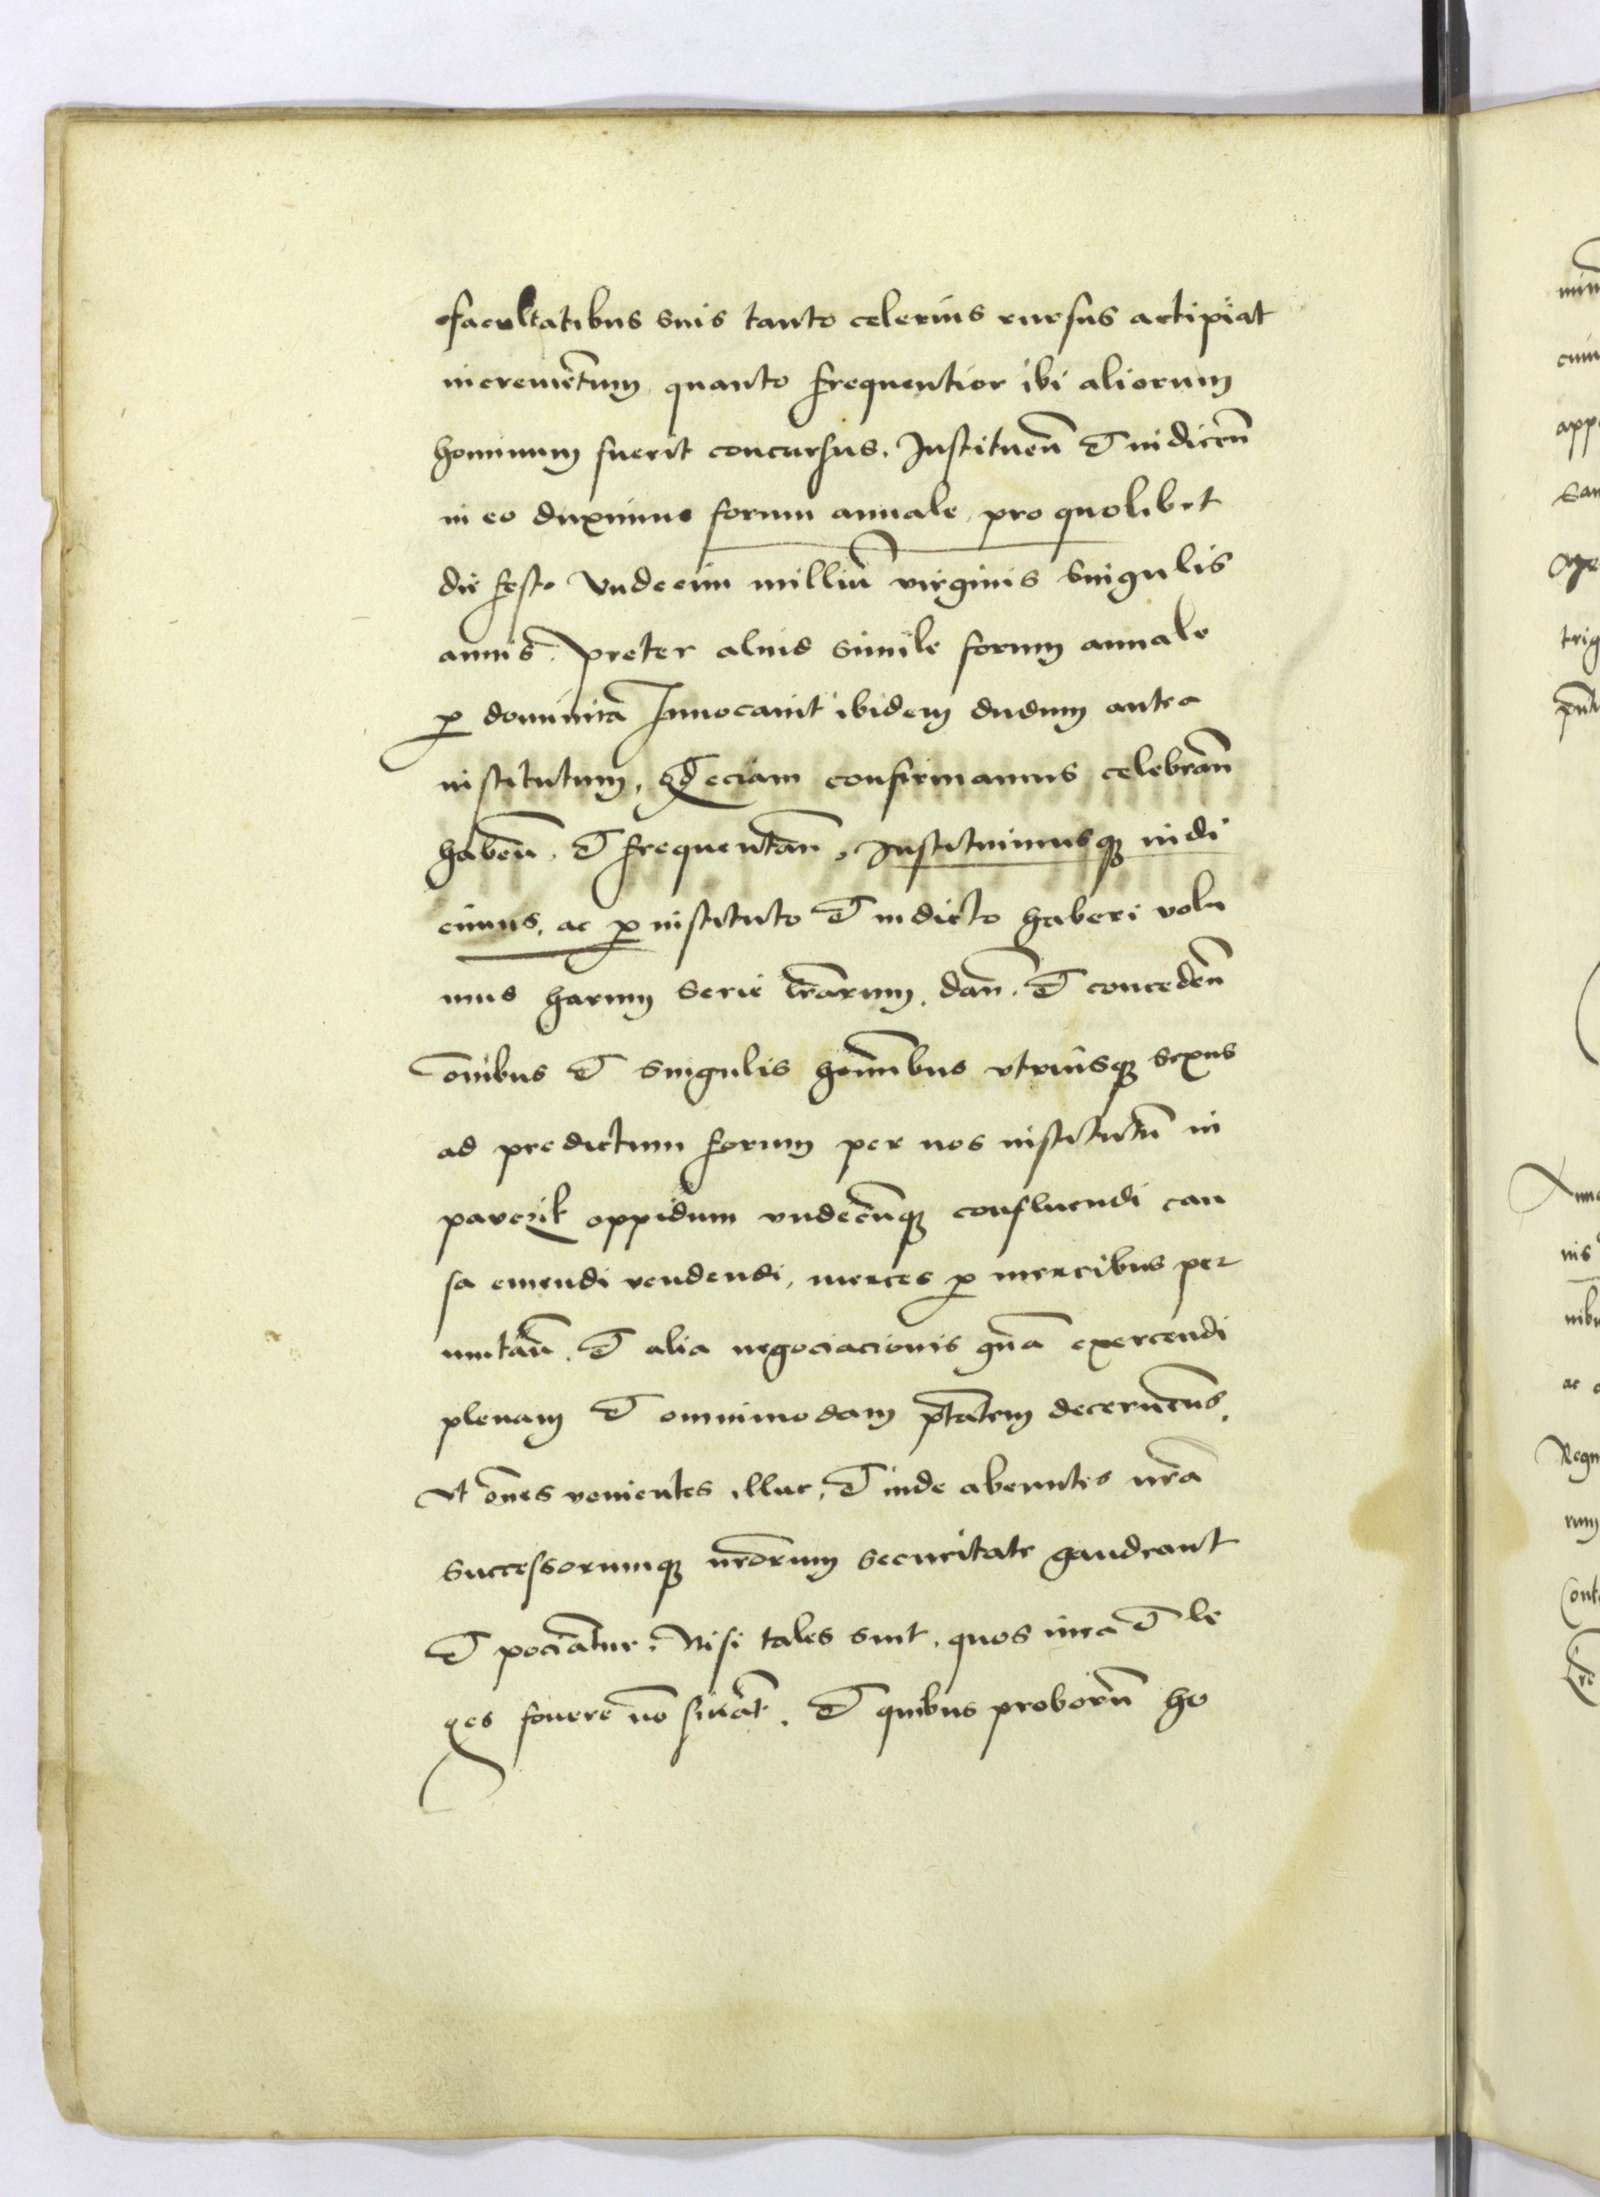 facultatibus suis tanto celerius rursus accipiat
incremẽtum quanto frequentior ibi aliorum
hominum fuerit concursus. Instituen̄ et indicen̄
in eo duximus forum annale, pro quolibet
die festo Vndecim milliũ virginis singulis
annis. preter aliud simile forum annale
ꝑ dominicã Inuocauit ibidem dudum antea
institutum, qđ eciam confirmamus celebran̄
haben̄. et frequentan̄. Instituimusqꝫ indi
cimus, ac ꝑ instituto et indicto haberi volu
mus harum serie lr̃arum. dan̄. et conceden̄
om̃ibus et singulis hom̃ibus vtriusqꝫ sexus
ad predictum forum per nos institutũ in
oppidum vndecũqꝫ confluendi cau
sa emendi vendendi, merces ꝑ mercibus per
mutan̄. et alia negociacionis gñã exercendi
plenam et omnimodam ptãtem decernẽtes,
vt om̃es venientes illuc, et inde abeuntes nr̃a
successorumqꝫ nr̃orum securitate gaudeant
et pociãtur. Nisi tales sint, quos iura et le
ges fouere nõ sinãt. et quibus proborũ ho